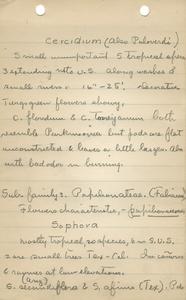 Cercidium (Also Paloverdi)
Small unimportant 5 tropical
3 extending into U.S. Along washes &
small rivers. 16"-25'.
Twigs green flowers showy,
C. floridum & C. Torreyanum both
resemble Parkinsonia but pods are flat
unconstricted & leaves a little larger. Also
with bad odor in burning.
Sub. family 3. Papilionateae. (Fabia
Flowers characteristic, - papilionaceous
Sophora
mostly tropical, 20 species, 6 in S. U.S.
2 are small trees Tex - Cal. One
& rivers at low elevations.
S. secundiflora & S. affinis (Tex). Pods